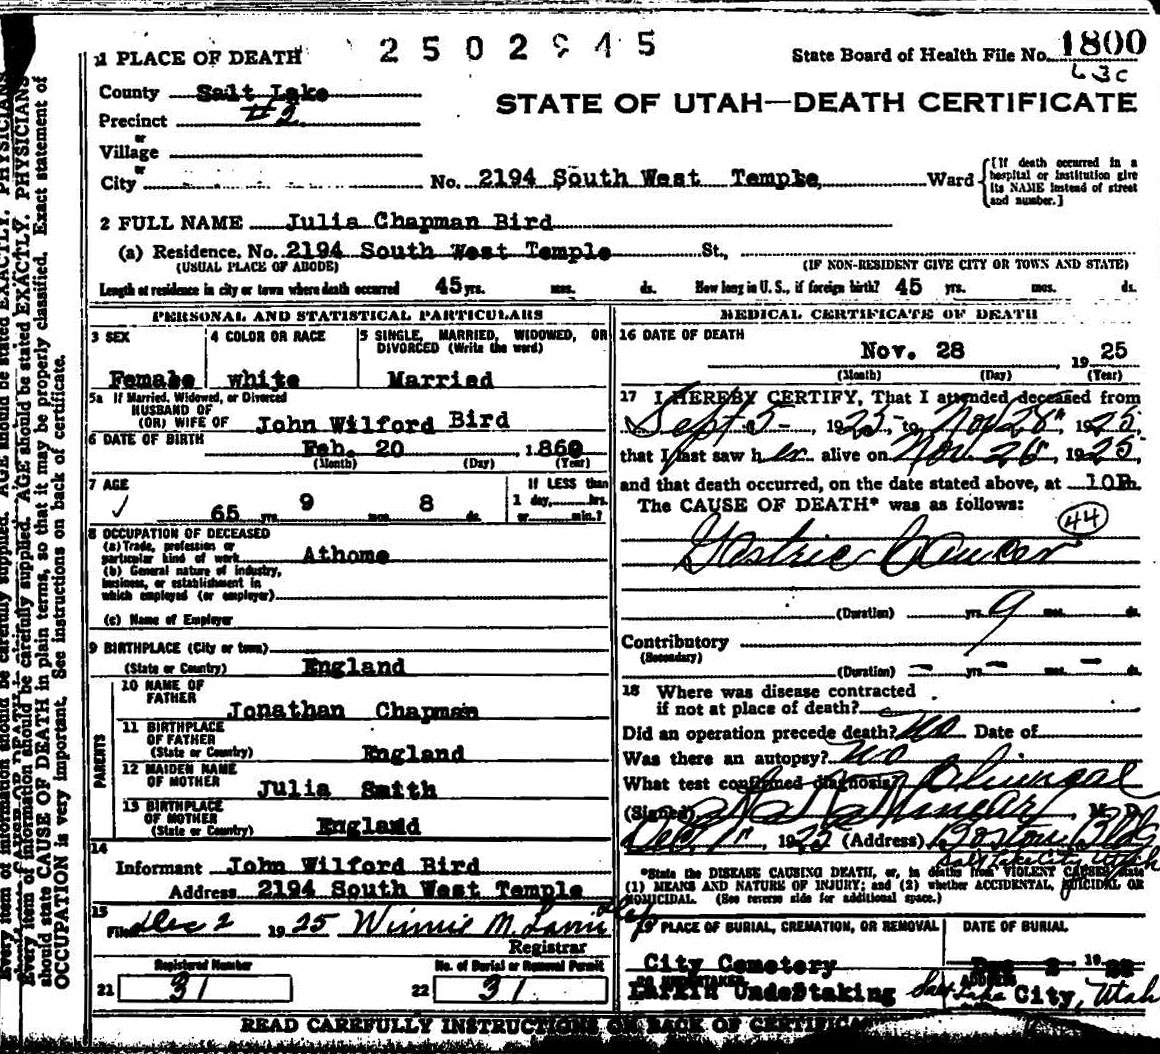 2502945
1 PLACE OF DEATH
State Board of Health File No. 1800
County Salt Lake
STATE OF UTAH—DEATH CERTIFICATE
Precinct #2
or
Village
or
City No. 2194 South West Temple, Ward
[If death occurred in a hospital or institution give its NAME instead of street and number.]
2 FULL NAME Julia Chapman Bird
(a) Residence. No. 2194 South West Temple St.,
(USUAL PLACE OF ABODE) (IF NON-RESIDENT GIVE CITY OR TOWN AND STATE)
Length of residence in city or town where death occurred 45 yrs. mos. ds. How long in U. S., if foreign birth? 45 yrs. mos. ds.
PERSONAL AND STATISTICAL PARTICULARS
3 SEX
Female
4 COLOR OR RACE
white
5 SINGLE, MARRIED, WIDOWED, OR DIVORCED (Write the word)
Married
5a If Married, Widowed, or Divorced
HUSBAND OF
(OR) WIFE OF John Wilford Bird
6 DATE OF BIRTH Feb. 20, 1860
(Month) (Day) (Year)
7 AGE
65 yrs. 9 mos. 8 ds.
If LESS than
1 day, hrs.
or min.?
8 OCCUPATION OF DECEASED
(a) Trade, profession or
particular kind of work Athome
(b) General nature of industry,
business, or establishment in
which employed (or employer)
(c) Name of Employer
9 BIRTHPLACE (City or town)
(State or Country) England
PARENTS
10 NAME OF
FATHER Jonathan Chapman
11 BIRTHPLACE
OF FATHER
(State or Country) England
12 MAIDEN NAME
OF MOTHER Julia Smith
13 BIRTHPLACE
OF MOTHER
(State or Country) England
14
Informant John Wilford Bird
Address 2194 South West Temple
15
Filed Dec 2 1925 Winnie M.
Registrar
Registered Number
21 31
No. of Burial or Removal Permit
22 31
MEDICAL CERTIFICATE OF DEATH
16 DATE OF DEATH
Nov. 28 1925
(Month) (Day) (Year)
17 I HEREBY CERTIFY, That I attended deceased from
Sept 5-, 1925, to Nov 28", 1925,
that I last saw her alive on Nov. 26, 1925,
and that death occurred, on the date stated above, at 10P.
The CAUSE OF DEATH* was as follows:
44
Gastric Cancer
(Duration) yrs. 9 mos. ds.
Contributory
(Secondary)
(Duration) - yrs. - mos. - ds.
18 Where was disease contracted
if not at place of death?
Did an operation precede death? No Date of
Was there an autopsy? No
What test confirmed diagnosis?
(Signed) M. D.
Dec. 1", 1925 (Address) Boston Bldg
Salt Lake City Utah
*State the DISEASE CAUSING DEATH, or, in deaths from VIOLENT CAUSES, state
(1) MEANS AND NATURE OF INJURY; and (2) whether ACCIDENTAL, SUICIDAL OR
HOMICIDAL. (See reverse side for additional space.)
19 PLACE OF BURIAL, CREMATION, OR REMOVAL
City Cemetery
DATE OF BURIAL
Dec 2
20 UNDERTAKER
Undertaking
ADDRESS
Salt Lake City, Utah
READ CAREFULLY INSTRUCTIONS ON BACK OF CERTIFICATE
Every item of information should be carefully supplied. AGE should be stated EXACTLY. PHYSICIANS
should state CAUSE OF DEATH in plain terms, so that it may be properly classified. Exact statement of
OCCUPATION is very important. See instructions on back of certificate.